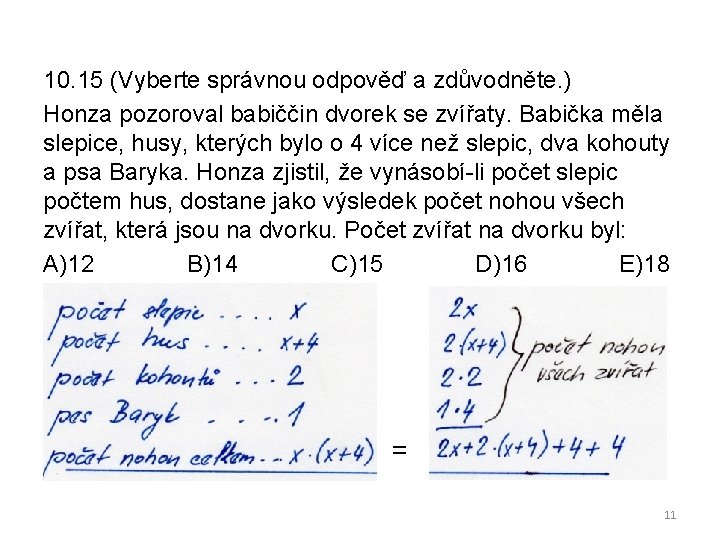 10.15 (Vyberte správnou odpověď a zdůvodněte.)
Honza pozoroval babiččin dvorek se zvířaty. Babička měla
slepice, husy, kterých bylo o 4 více než slepic, dva kohouty
a psa Baryka. Honza zjistil, že vynásobí-li počet slepic
počtem hus, dostane jako výsledek počet nohou všech
zvířat, která jsou na dvorku. Počet zvířat na dvorku byl:
A)12 B)14 C)15 D)16 E)18
počet slepic .... x
počet hus .... x+4
počet kohoutů ... 2
pes Baryk ... 1
počet nohou celkem .. x·(x+4)
=
2x
2·(x+4)
2·2
1·4
počet nohou
všech zvířat
2x+2·(x+4)+4+4
11